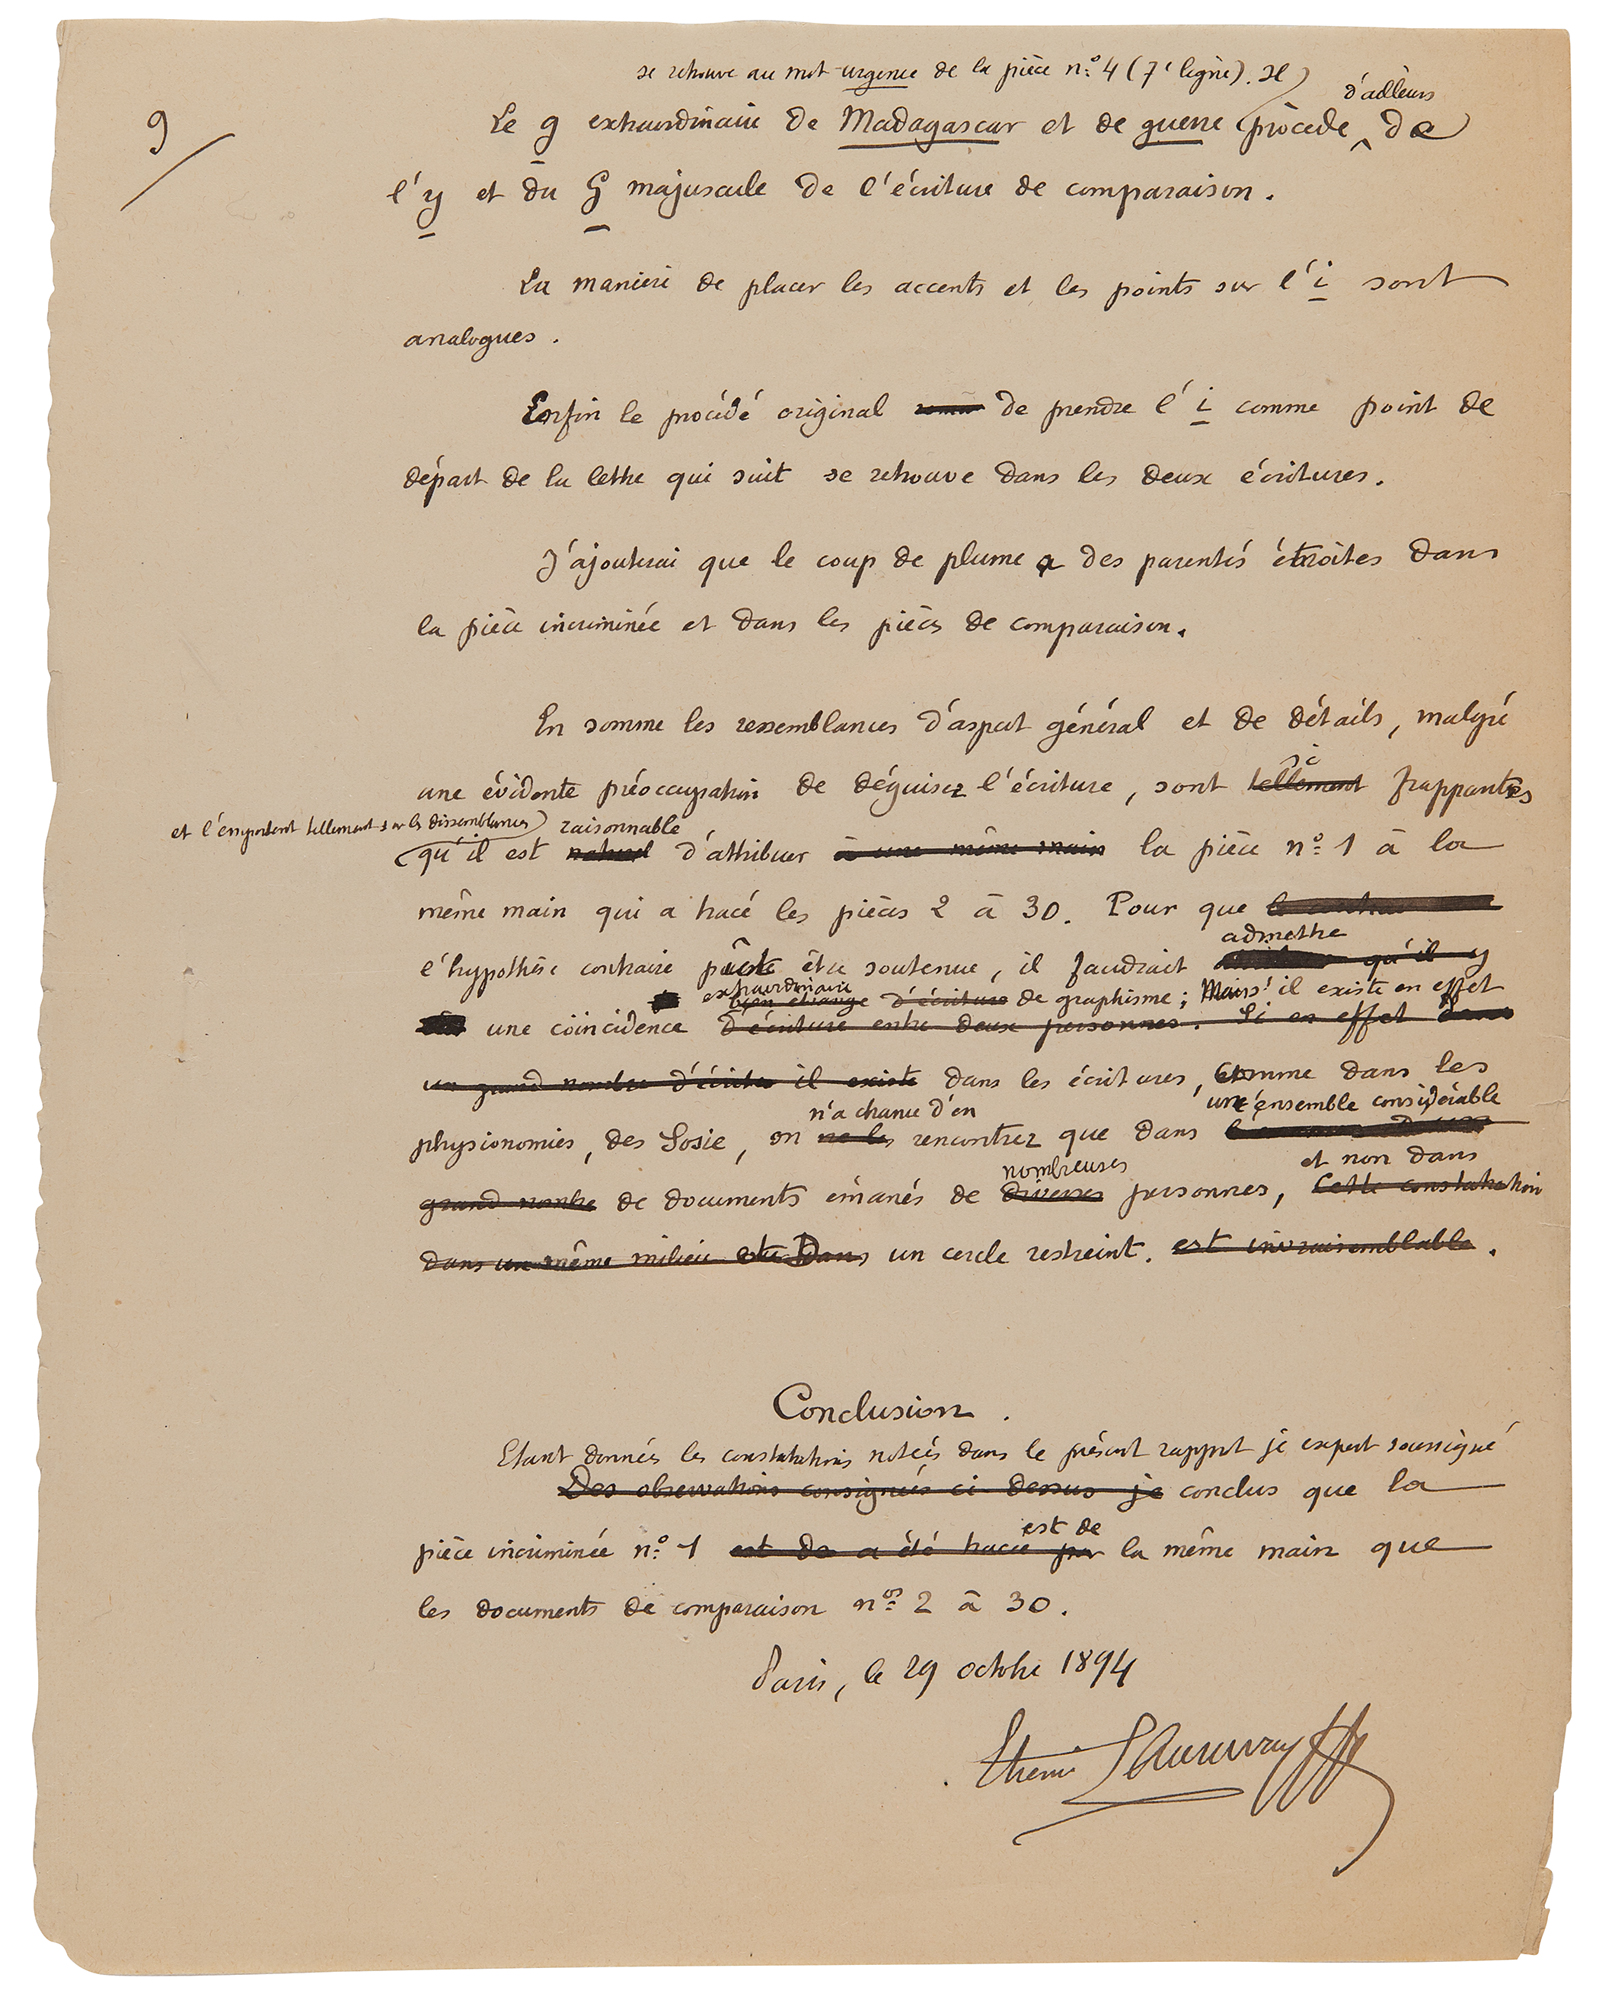 9/
se retrouve au mot urgence de la pièce n:º 4 (7e ligne). Il
d'ailleurs
Le g extraordinaire de Madagascar et de guerre procède de
l'y et du G majuscule de l'écriture de comparaison.
La manière de placer les accents et les points sur l'i sont
analogues.
Enfin le procédé original de prendre l'i comme point de
départ de la lettre qui suit se retrouve dans les deux écritures.
J'ajouterai que le coup de plume a des parentés étroites dans
la pièce incriminée et dans les pièces de comparaison.
En somme les ressemblances d'aspect général et de détails, malgré
si
une évidente préoccupation de déguiser l'écriture, sont tellement frappantes
et l'emportent tellement sur les dissemblances raisonnable
qu'il est naturel d'attribuer à une même main la pièce n:º 1 à la
même main qui a tracé les pièces 2 à 30. Pour que
admettre
l'hypothèse contraire puisse être soutenue, il faudrait qu'il y
extraordinaire
bien étrange d'écriture de graphisme; Mais il existe en effet
une coïncidence d'écriture entre deux personnes. Si en effet dans
un grand nombre d'écrits il existe dans les écritures, comme dans les
n'a chance d'en un ensemble considérable
physionomies, des Sosie, on ne les rencontrer que dans
nombreuses et non dans
grand nombre de documents émanés de diverses personnes, Cette constatation
dans un même milieu Dans un cercle restreint. est invraisemblable.
Conclusion.
Etant donnés les constatations notées dans le présent rapport je expert soussigné
Des observations consignées ci dessus je conclus que la
est de
pièce incriminée n:º 1 est de a été tracée par la même main que
les documents de comparaison nos 2 à 30.
Paris, le 29 octobre 1894
Etienne Charavay